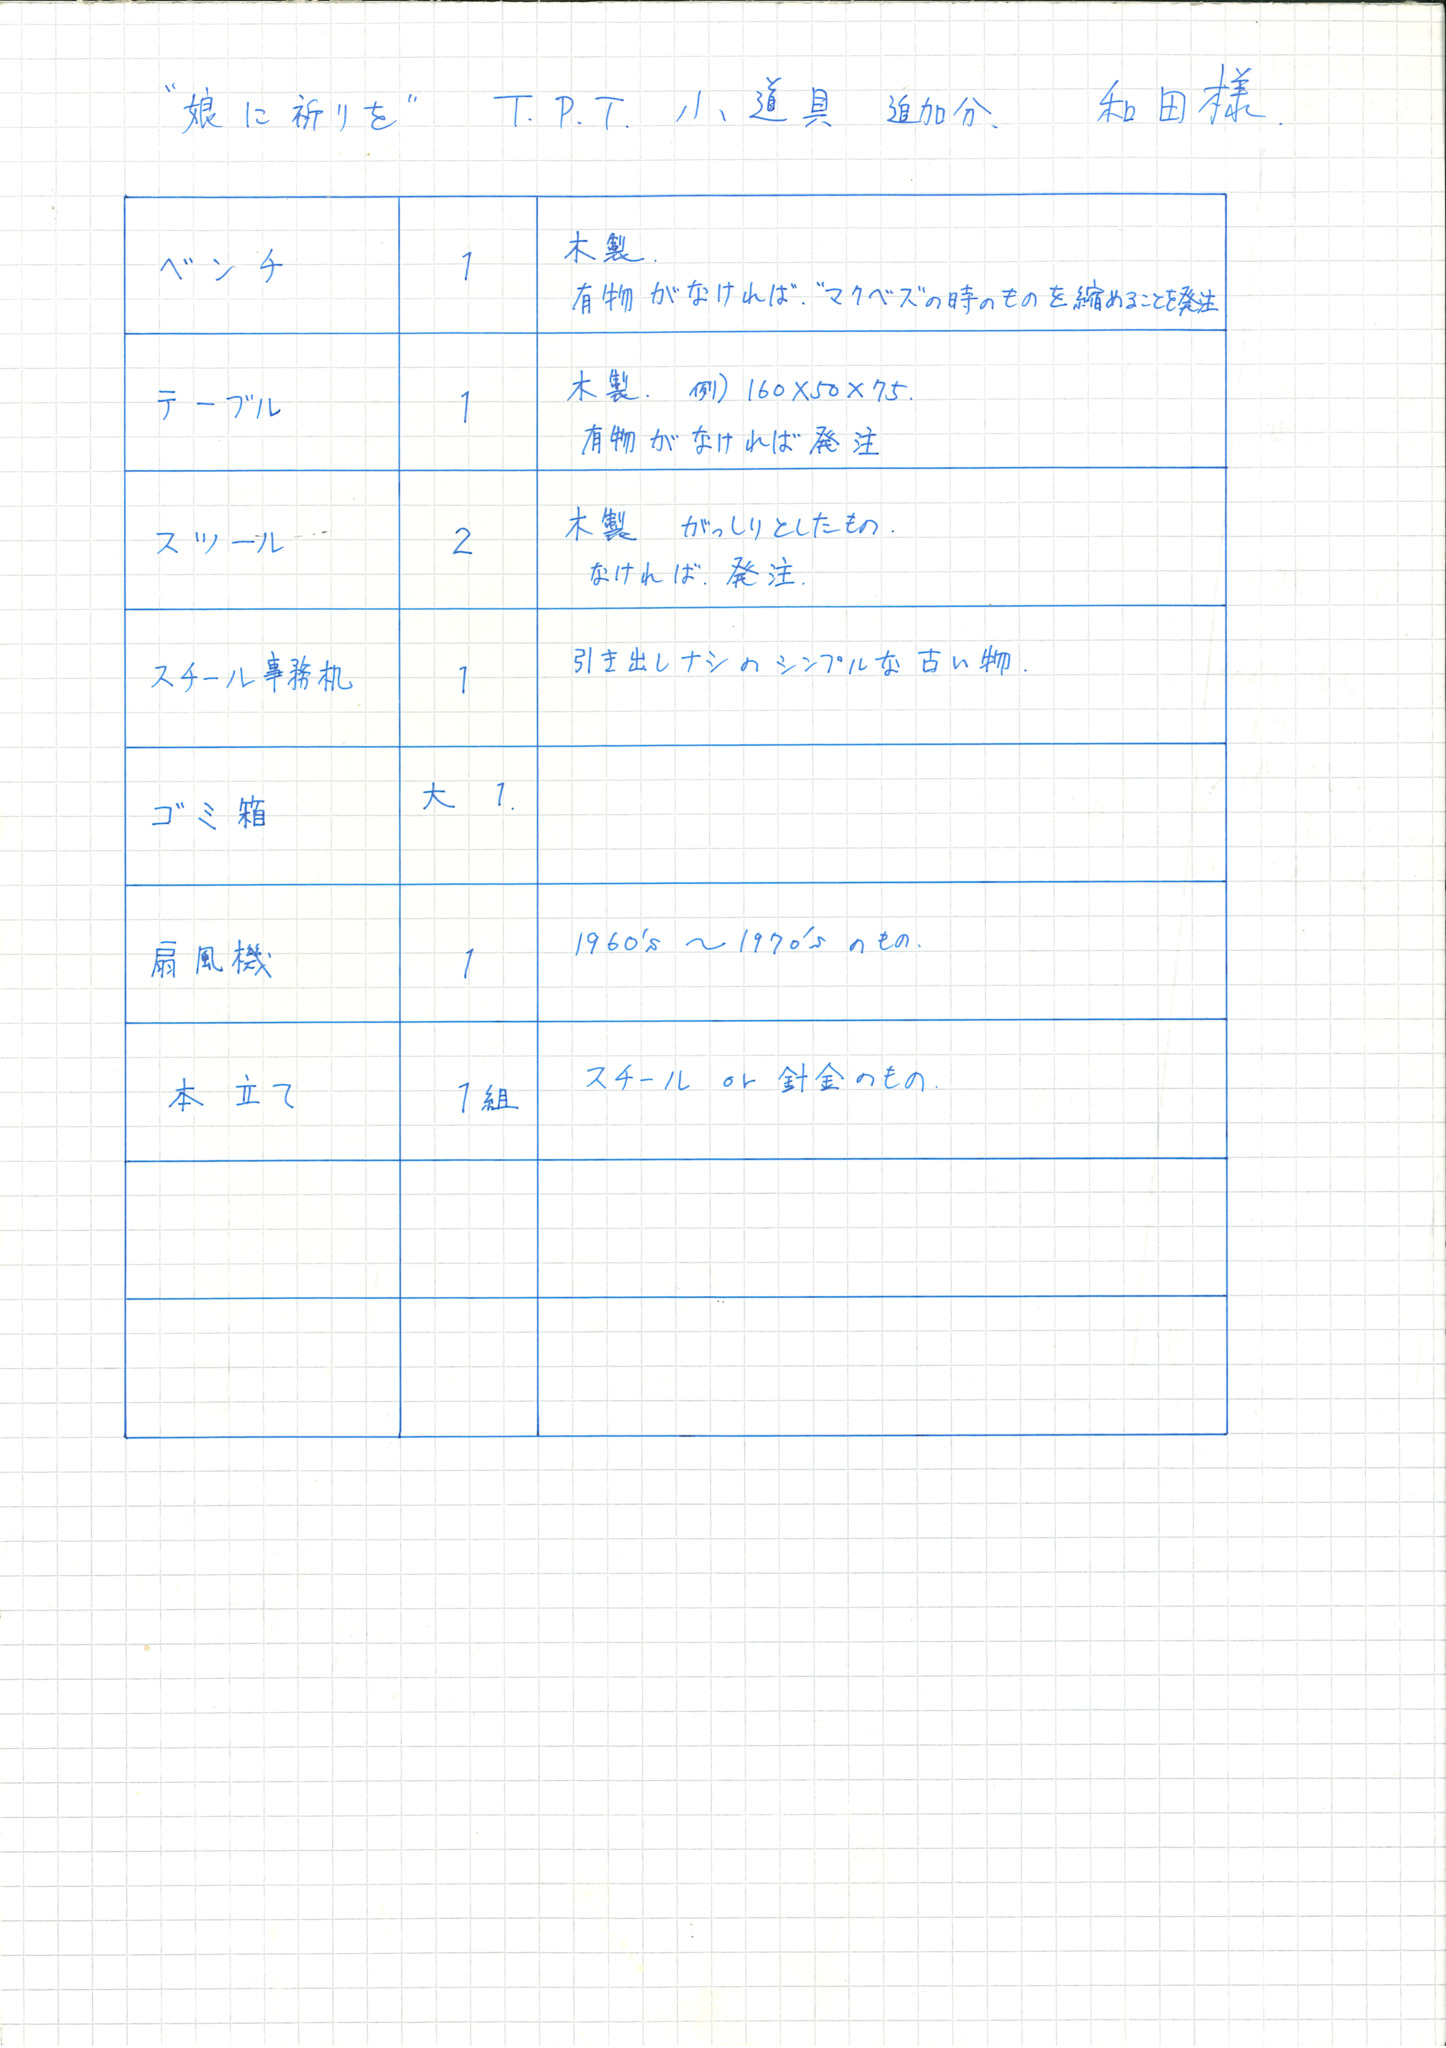 "娘に祈りを" T.P.T. 小道具 追加分、 和田様.
ベンチ 1 木製.
有物がなければ、"マクベス"の時のものを縮めることを発注
テーブル 1 木製. 例) 160×50×75.
有物がなければ発注
スツール 2 木製 がっしりとしたもの.
なければ、発注.
スチール事務机 1 引き出しナシのシンプルな古い物.
ゴミ箱 大 1.
扇風機 1 1960's 〜 1970's のもの.
本立て 1組 スチール or 針金のもの.